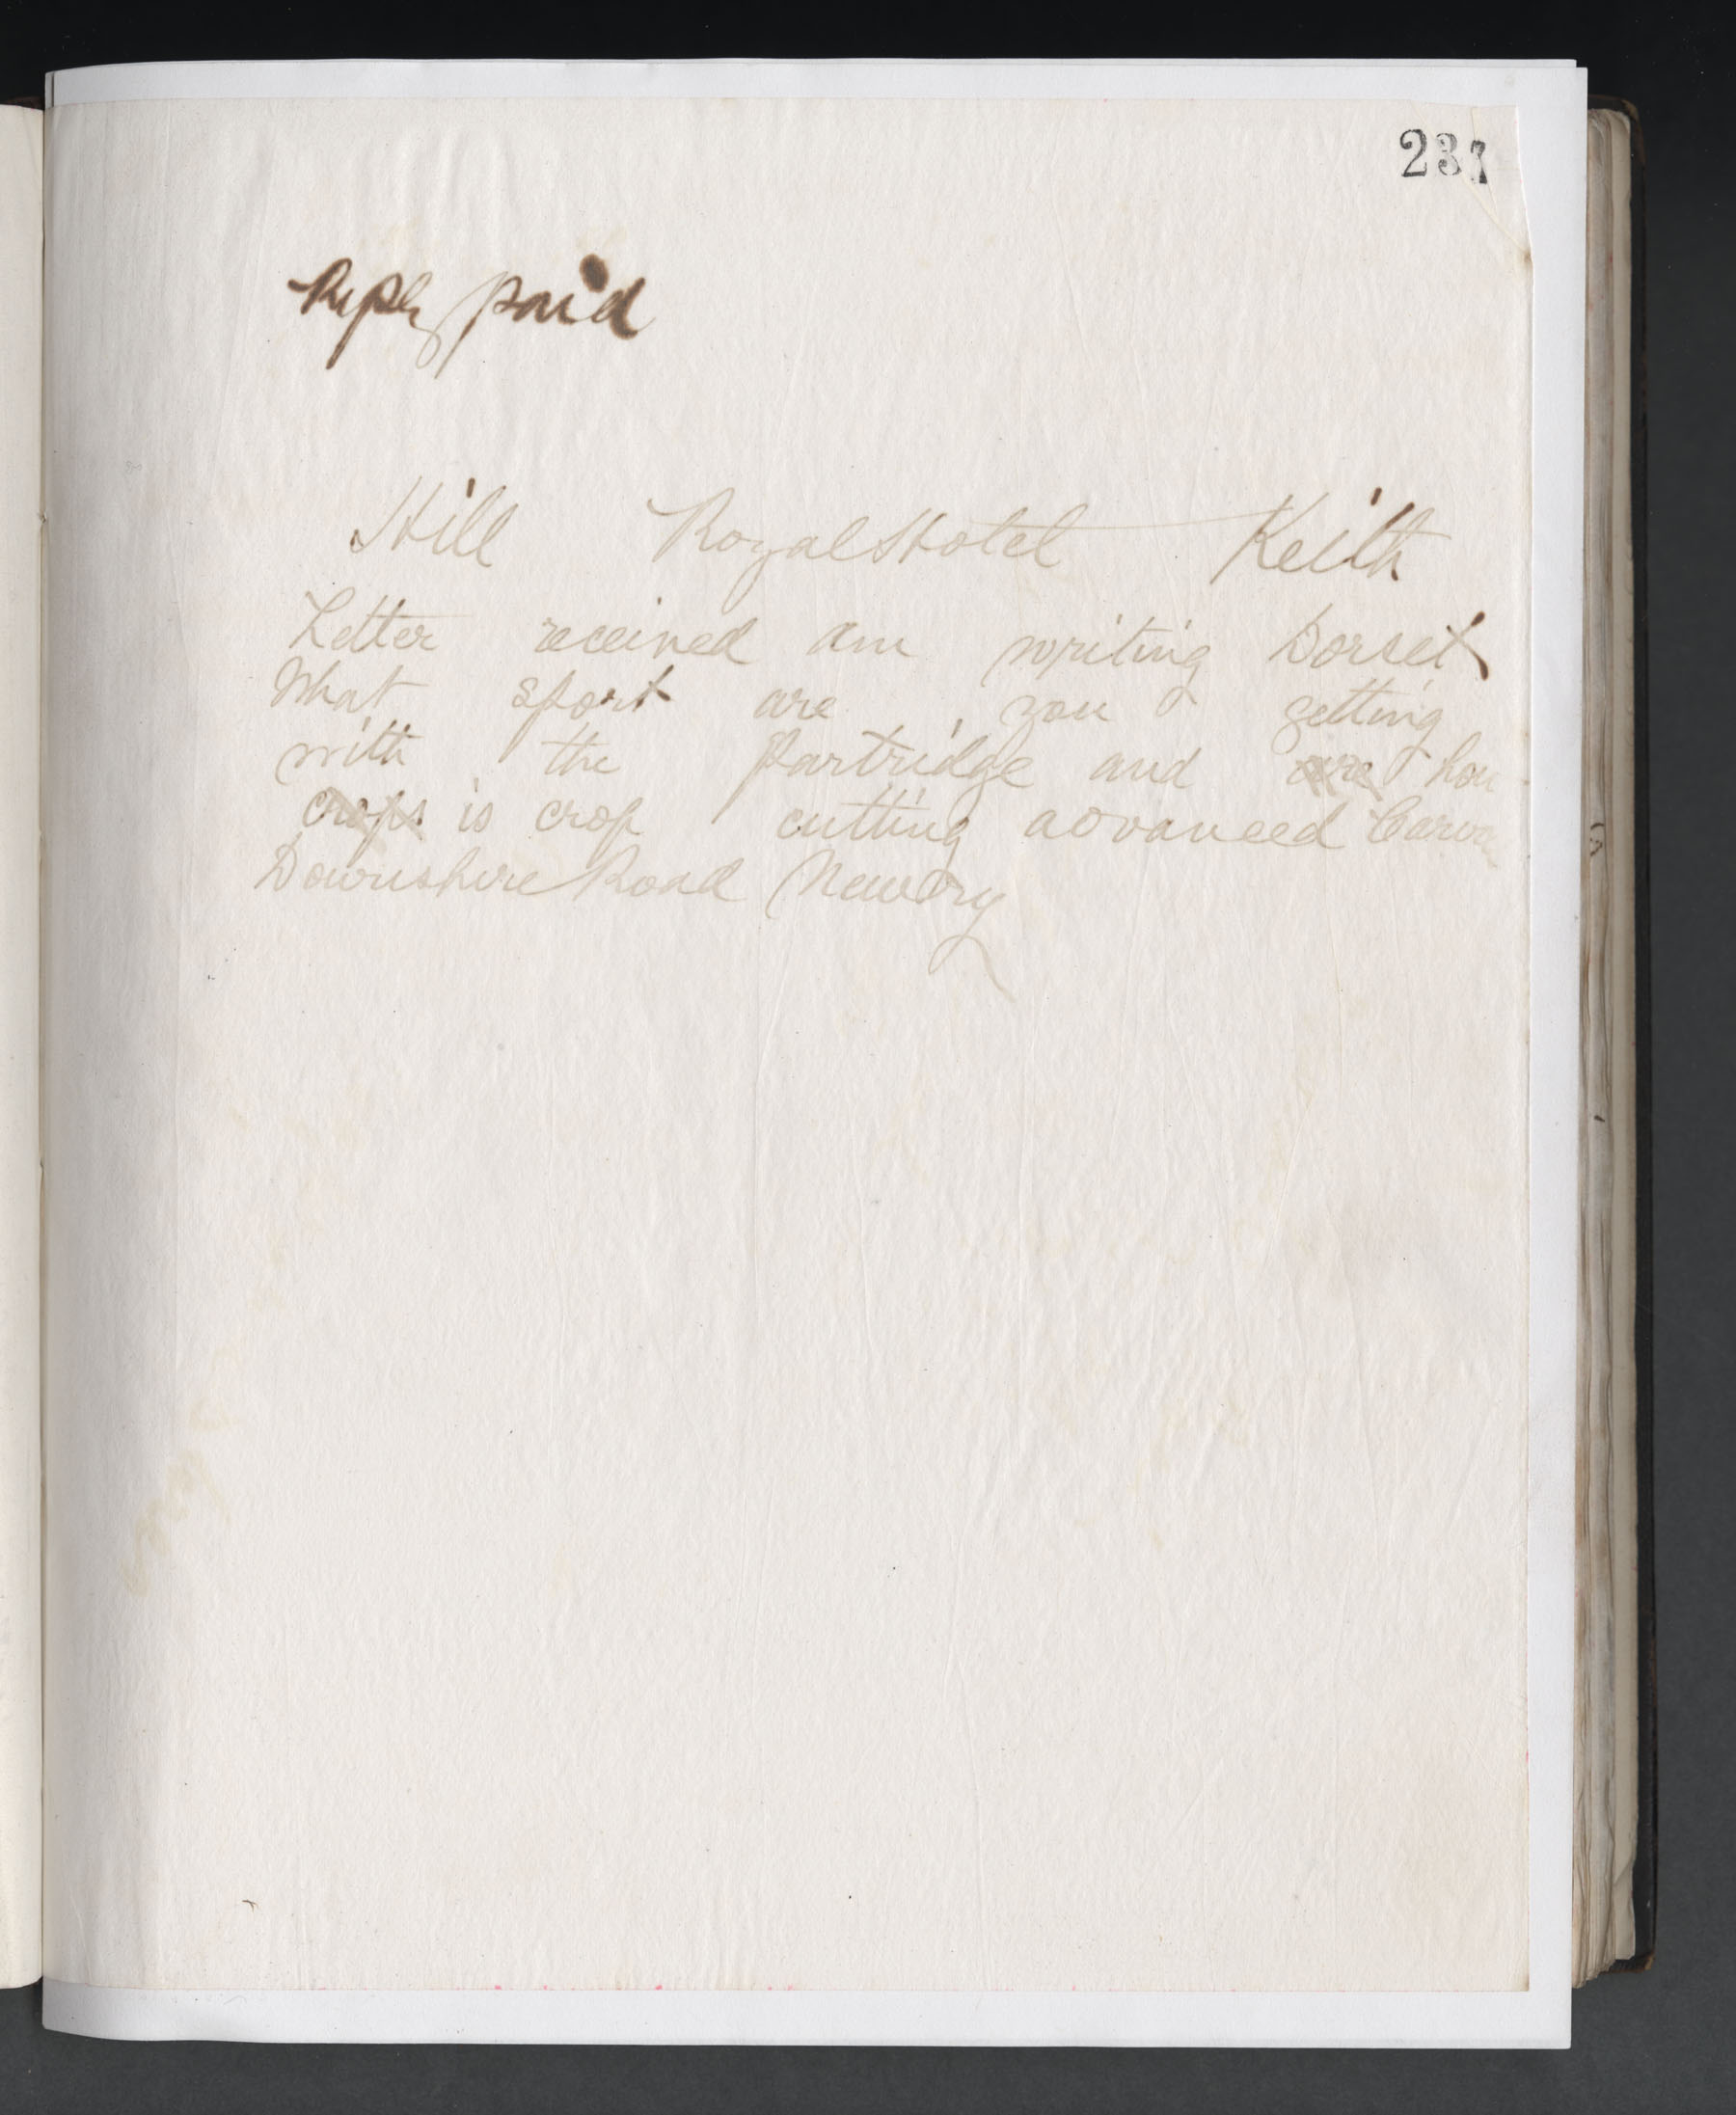 237
Reply paid
Hill Royal Hotel Keith
Letter received am writing Dorset
What sport are you getting
with the partridge and are how
crops is crop cutting advanced
Downshire Road Newry